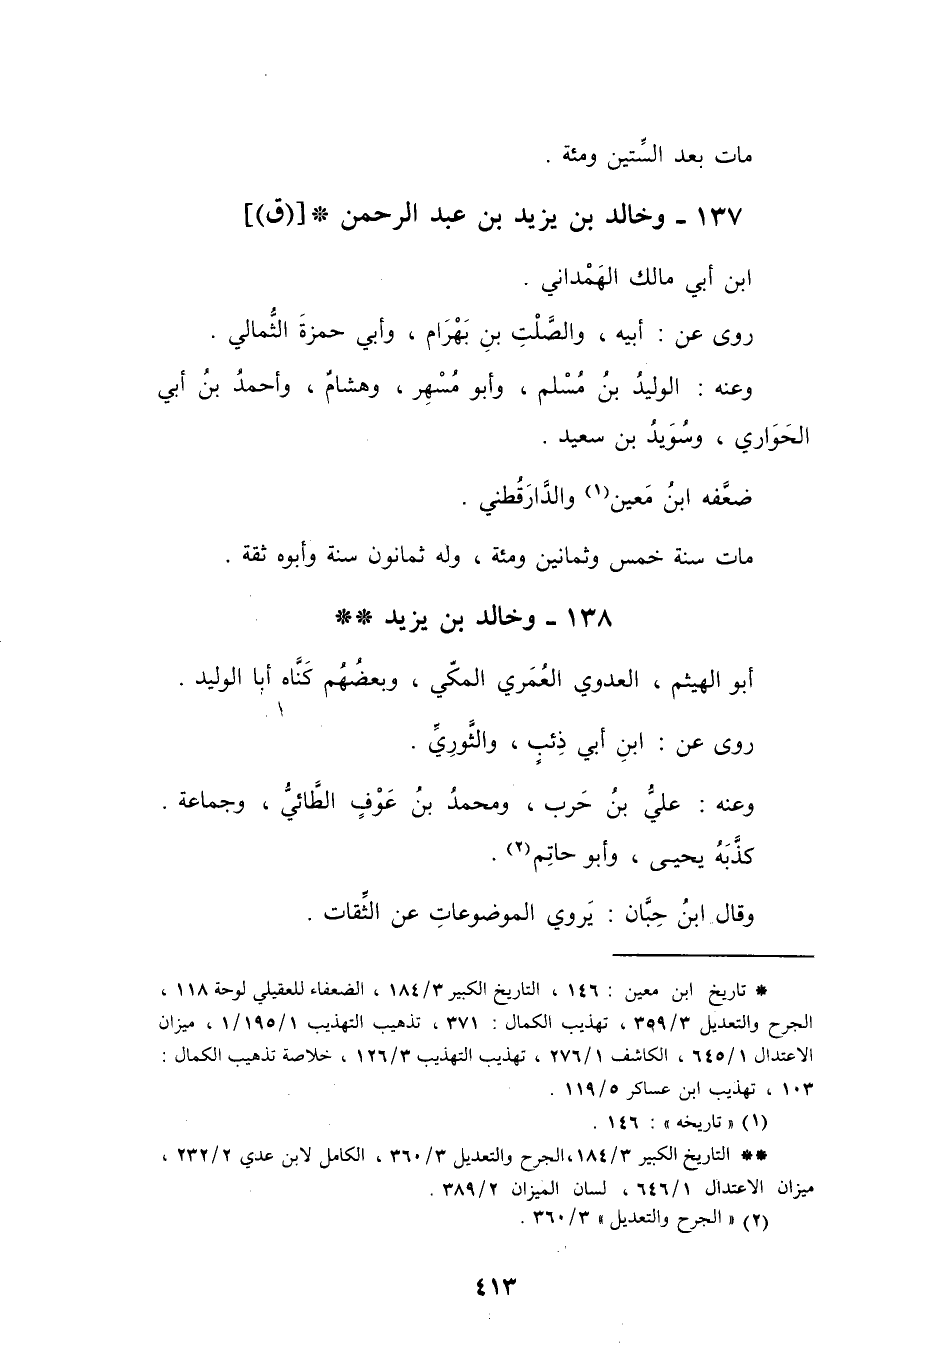 مات بعد السِّتين ومئة .
١٣٧ ـ وخالد بن يزيد بن عبد الرحمن * [(ق)]
ابن أبي مالك الهَمْداني .
روى عن : أبيه ، والصَّلْتِ بنِ بَهْرَام ، وأبي حمزةَ الثُّمالي .
وعنه : الوليدُ بنُ مُسْلم ، وأبو مُسْهِر ، وهشامٌ ، وأحمدُ بنُ أبي
الحَوَاري ، وسُوَيدُ بن سعيد .
ضعَّفه ابنُ مَعين(١) والدَّارَقُطني .
مات سنة خمس وثمانين ومئة ، وله ثمانون سنة وأبوه ثقة .
١٣٨ ـ وخالد بن يزيد **
أبو الهيثم ، العدوي العُمَري المكّي ، وبعضُهُم كَنَّاه أبا الوليد .
روى عن : ابنِ أبي ذِئبٍ ، والثَّورِيِّ .
وعنه : عليُّ بنُ حَرب ، ومحمدُ بنُ عَوْفٍ الطَّائيُّ ، وجماعة .
كذَّبَهُ يحيـى ، وأبو حاتِم(٢) .
وقال ابنُ حِبَّان : يَروي الموضوعاتِ عن الثِّقات .
* تاريخ ابن معين : ١٤٦ ، التاريخ الكبير ١٨٤/٣ ، الضعفاء للعقيلي لوحة ١١٨ ،
الجرح والتعديل ٣٥٩/٣ ، تهذيب الكمال : ٣٧١ ، تذهيب التهذيب ١/١٩٥/١ ، ميزان
الاعتدال ٦٤٥/١ ، الكاشف ٢٧٦/١ ، تهذيب التهذيب ١٢٦/٣ ، خلاصة تذهيب الكمال :
١٠٣ ، تهذيب ابن عساكر ١١٩/٥ .
(١) « تاريخه » : ١٤٦ .
** التاريخ الكبير ١٨٤/٣،الجرح والتعديل ٣٦٠/٣ ، الكامل لابن عدي ٢٣٢/٢ ،
ميزان الاعتدال ٦٤٦/١ ، لسان الميزان ٣٨٩/٢ .
(٢) « الجرح والتعديل » ٣٦٠/٣ .
٤١٣